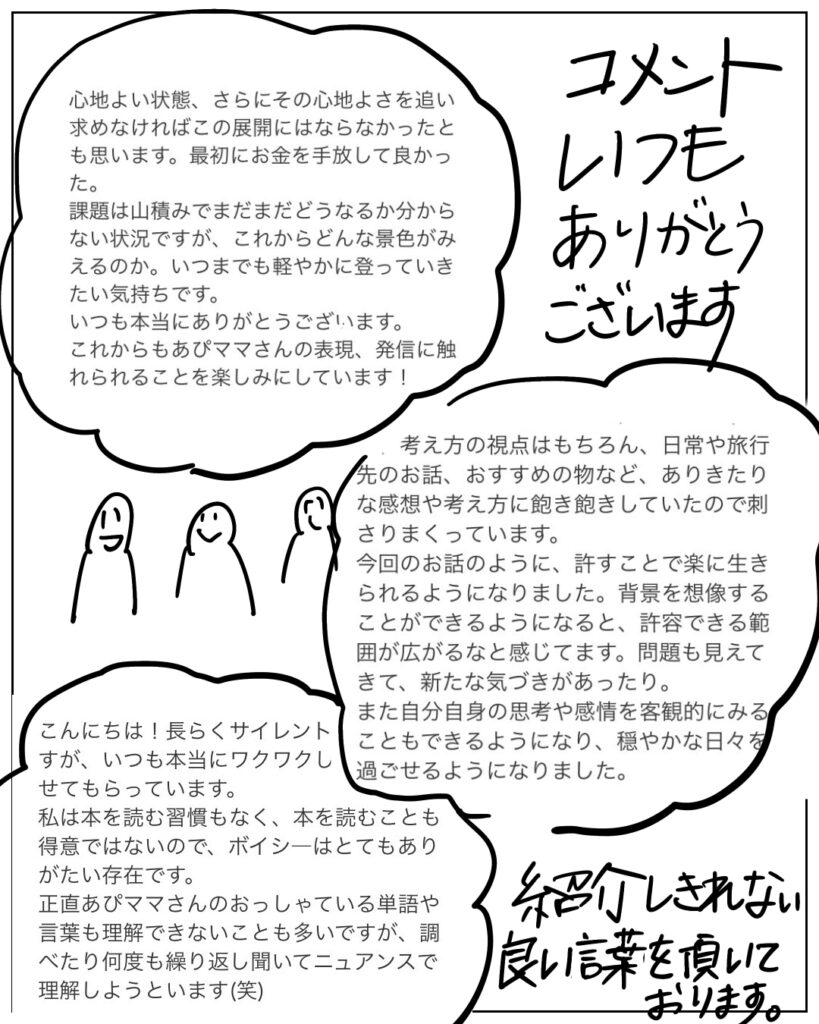 コメント
いつも
ありがとう
ございます
心地よい状態、さらにその心地よさを追い
求めなければこの展開にはならなかったと
も思います。最初にお金を手放して良かっ
た。
課題は山積みでまだまだどうなるか分から
ない状況ですが、これからどんな景色がみ
えるのか。いつまでも軽やかに登っていき
たい気持ちです。
いつも本当にありがとうございます。
これからもあぴママさんの表現、発信に触
れられることを楽しみにしています！
考え方の視点はもちろん、日常や旅行
先のお話、おすすめの物など、ありきたり
な感想や考え方に飽き飽きしていたので刺
さりまくっています。
今回のお話のように、許すことで楽に生き
られるようになりました。背景を想像する
ことができるようになると、許容できる範
囲が広がるなと感じてます。問題も見えて
きて、新たな気づきがあったり。
また自分自身の思考や感情を客観的にみる
こともできるようになり、穏やかな日々を
過ごせるようになりました。
こんにちは！長らくサイレント
すが、いつも本当にワクワクし
せてもらっています。
私は本を読む習慣もなく、本を読むことも
得意ではないので、ボイシーはとてもあり
がたい存在です。
正直あぴママさんのおっしゃている単語や
言葉も理解できないことも多いですが、調
べたり何度も繰り返し聞いてニュアンスで
理解しようといます(笑)
紹介しきれない
良い言葉を頂いて
おります。